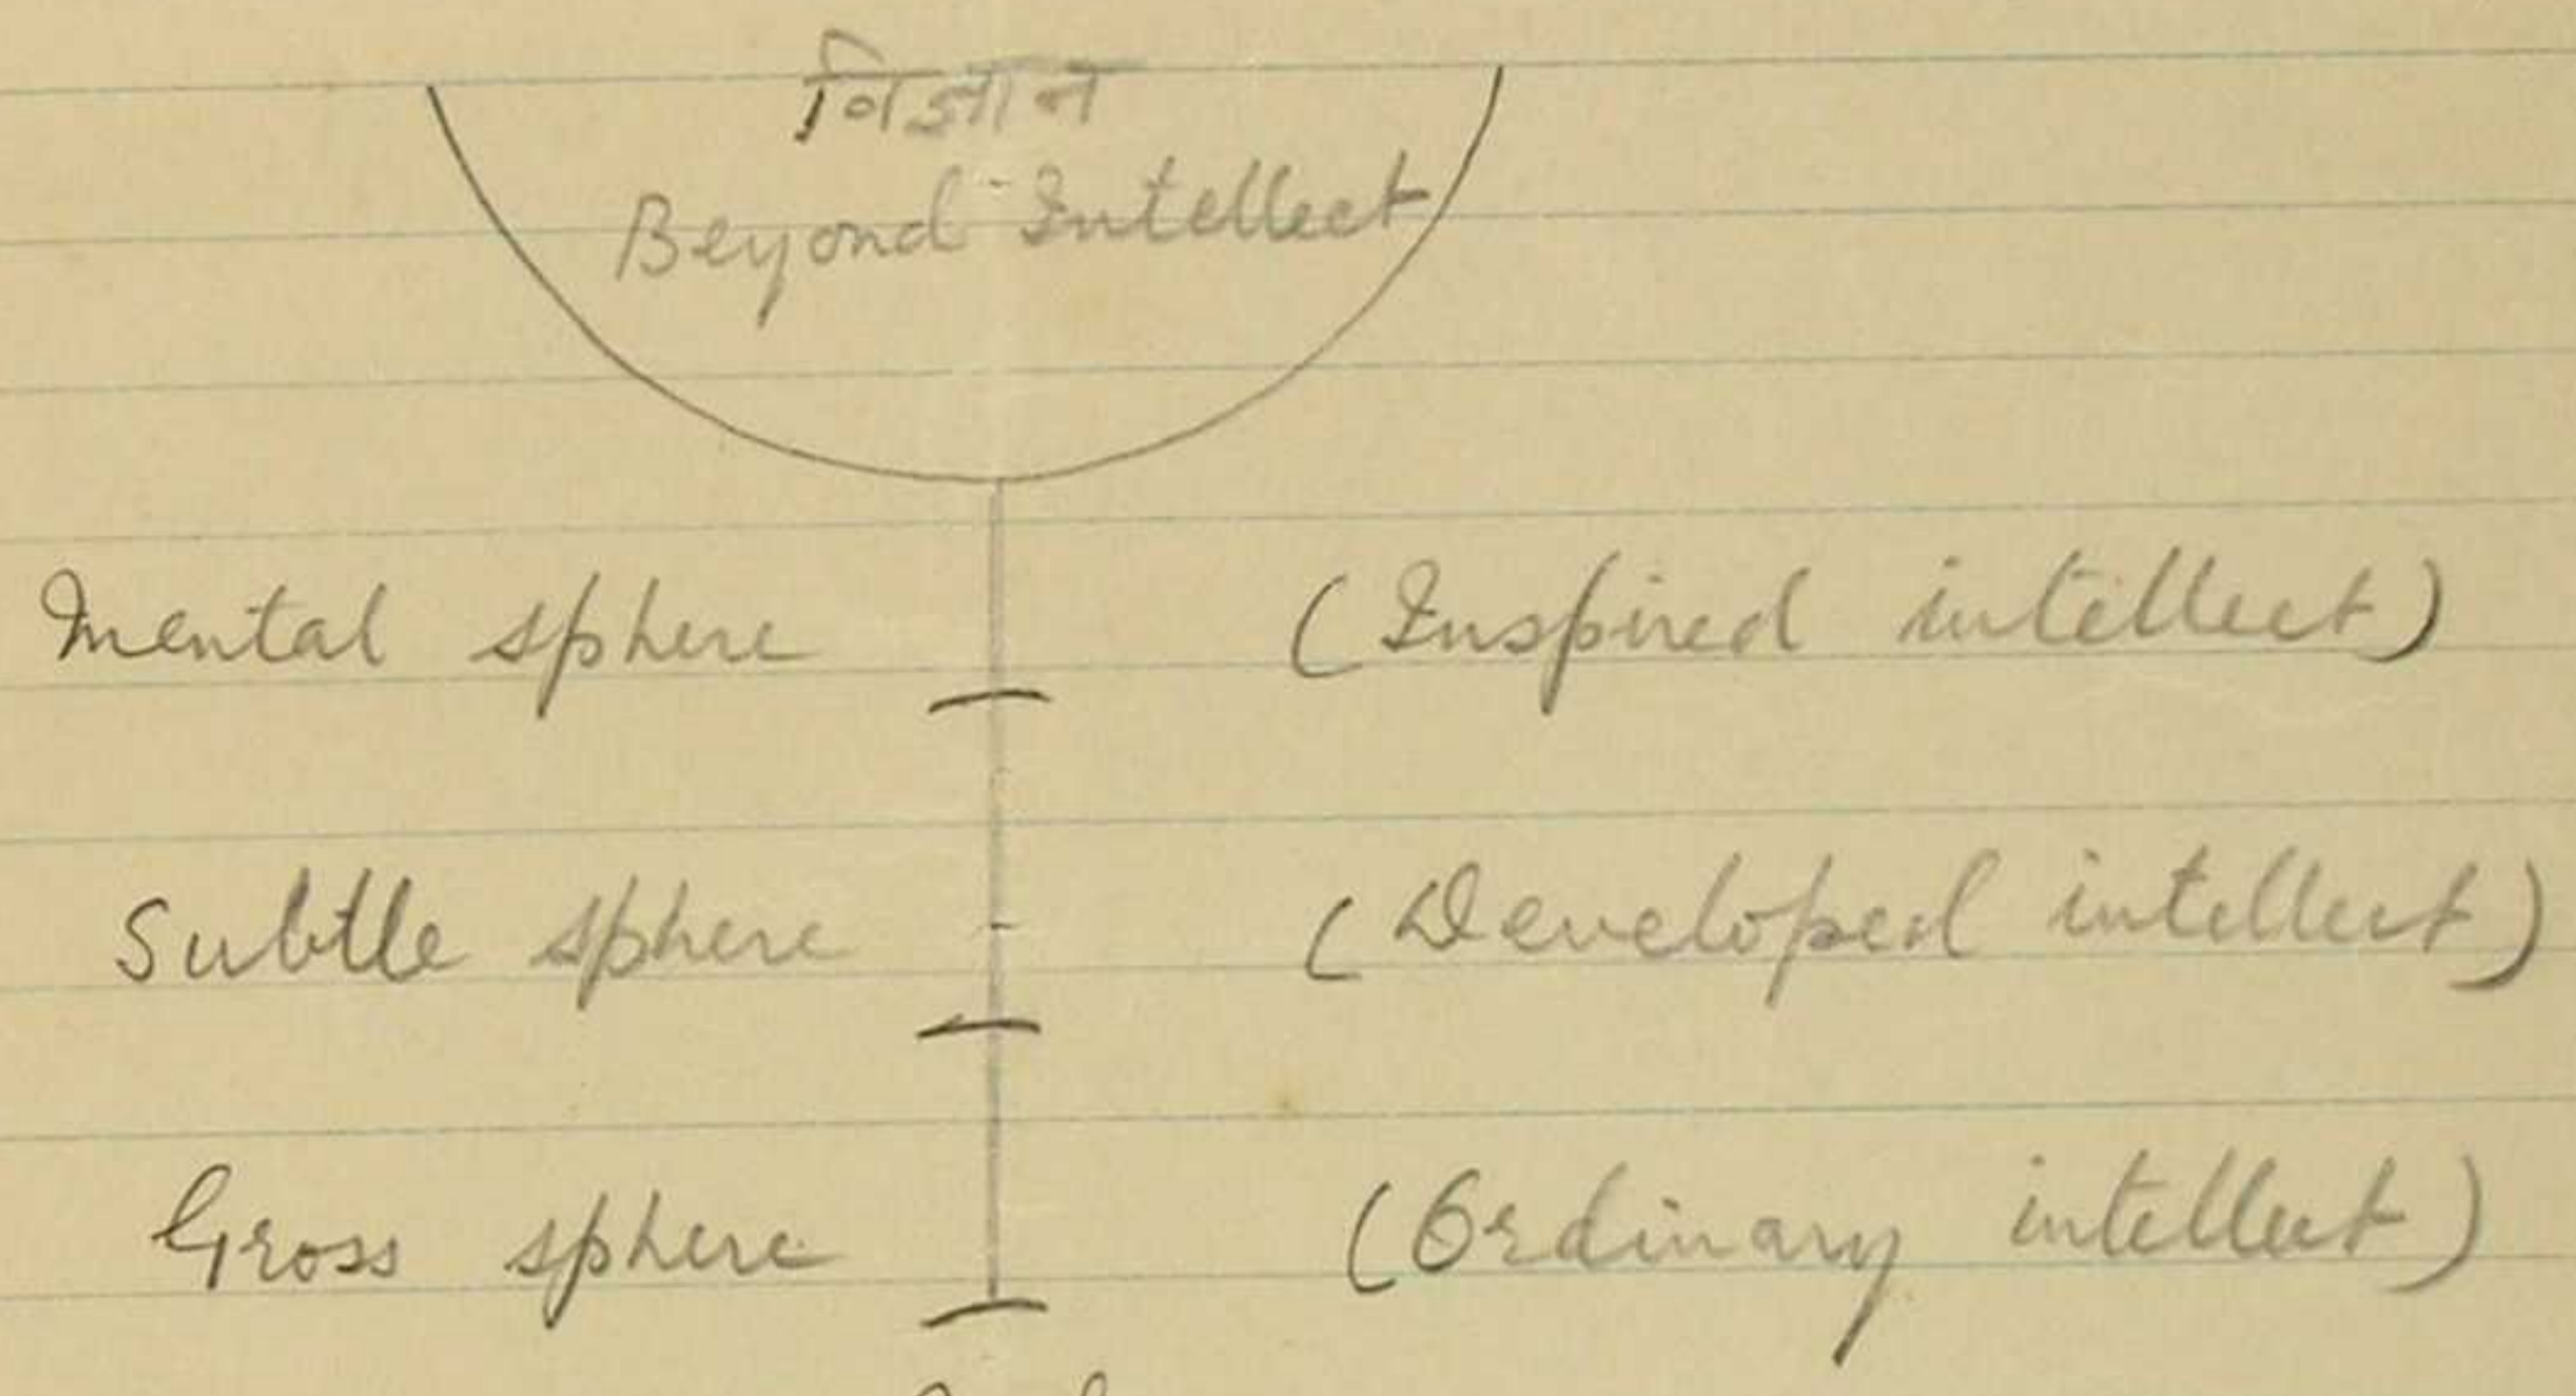 विज्ञान
Beyond Intellect
Mental sphere (Inspired intellect)
Subtle sphere (Developed intellect)
Gross sphere (Ordinary intellect)